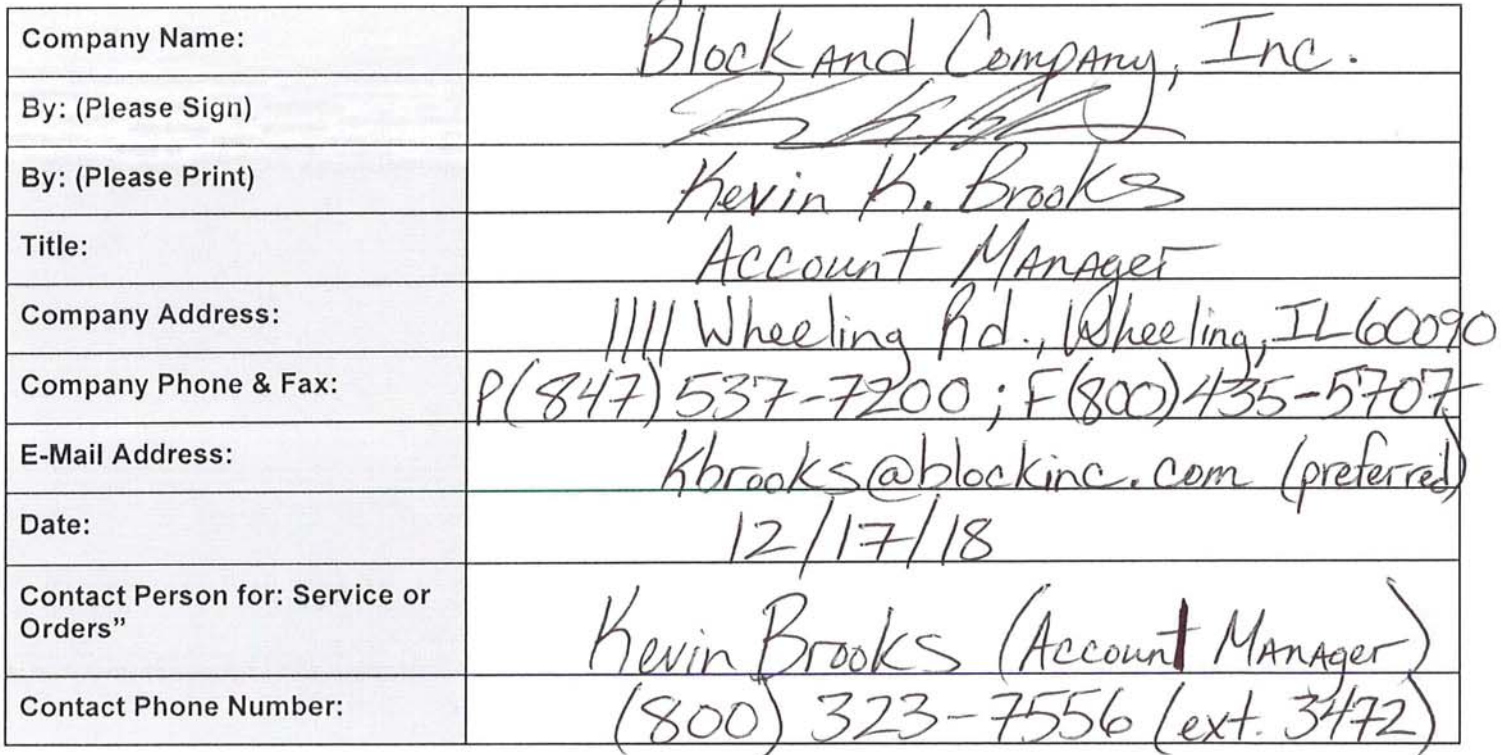 Company Name: Block And Company, Inc.
By: (Please Sign)
By: (Please Print) Kevin K. Brooks
Title: Account Manager
Company Address: 1111 Wheeling Rd., Wheeling, IL 60090
Company Phone & Fax: P(847) 537-7200 ; F(800) 435-5707
E-Mail Address: Kbrooks@blockinc.com (preferred)
Date: 12/17/18
Contact Person for: Service or
Orders" Kevin Brooks (Account Manager)
Contact Phone Number: (800) 323-7556 (ext. 3472)